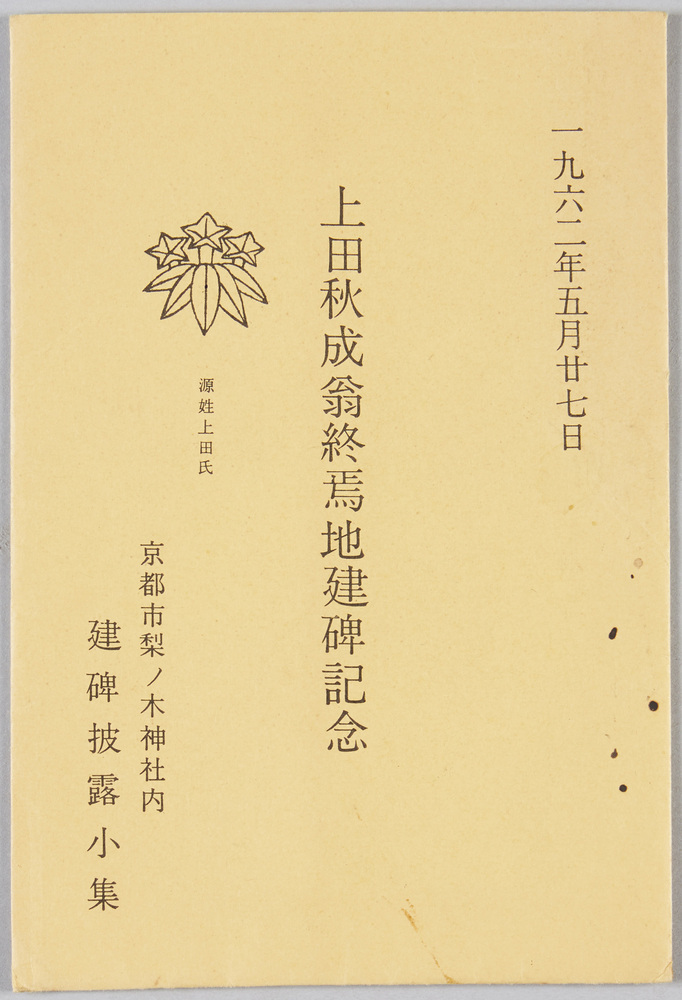 一九六二年五月廿七日
上田秋成翁終焉地建碑記念
源姓上田氏
京都市梨ノ木神社内
建碑披露小集